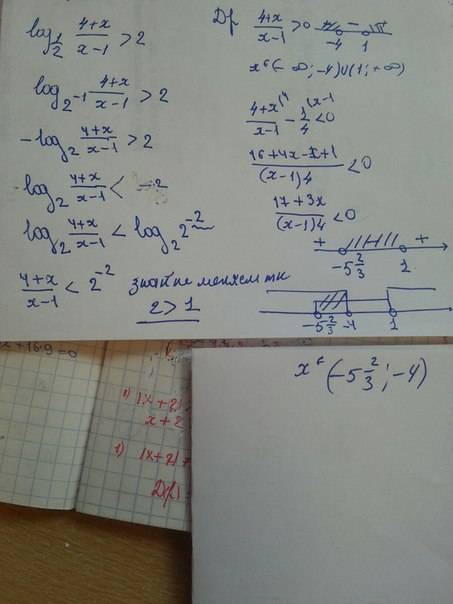 log_{1/2} (4+x)/(x-1) > 2
log_{2^{-1}} (4+x)/(x-1) > 2
-log_2 (4+x)/(x-1) > 2
log_2 (4+x)/(x-1) < -2
log_2 (4+x)/(x-1) < log_2 2^{-2}
(4+x)/(x-1) < 2^{-2} знак не меняем тк
2 > 1
Df (4+x)/(x-1) > 0
-4 1
x ∈ (-∞; -4) ∪ (1; +∞)
(4+x)/(x-1) - 1/4 < 0
(16+4x-x+1)/((x-1)4) < 0
(17+3x)/((x-1)4) < 0
+ +
-5 2/3 1
-5 2/3 -4 1
x ∈ (-5 2/3; -4)
+16·9=0
1) |x+2|
x+2
1) |x+2|
D(f)